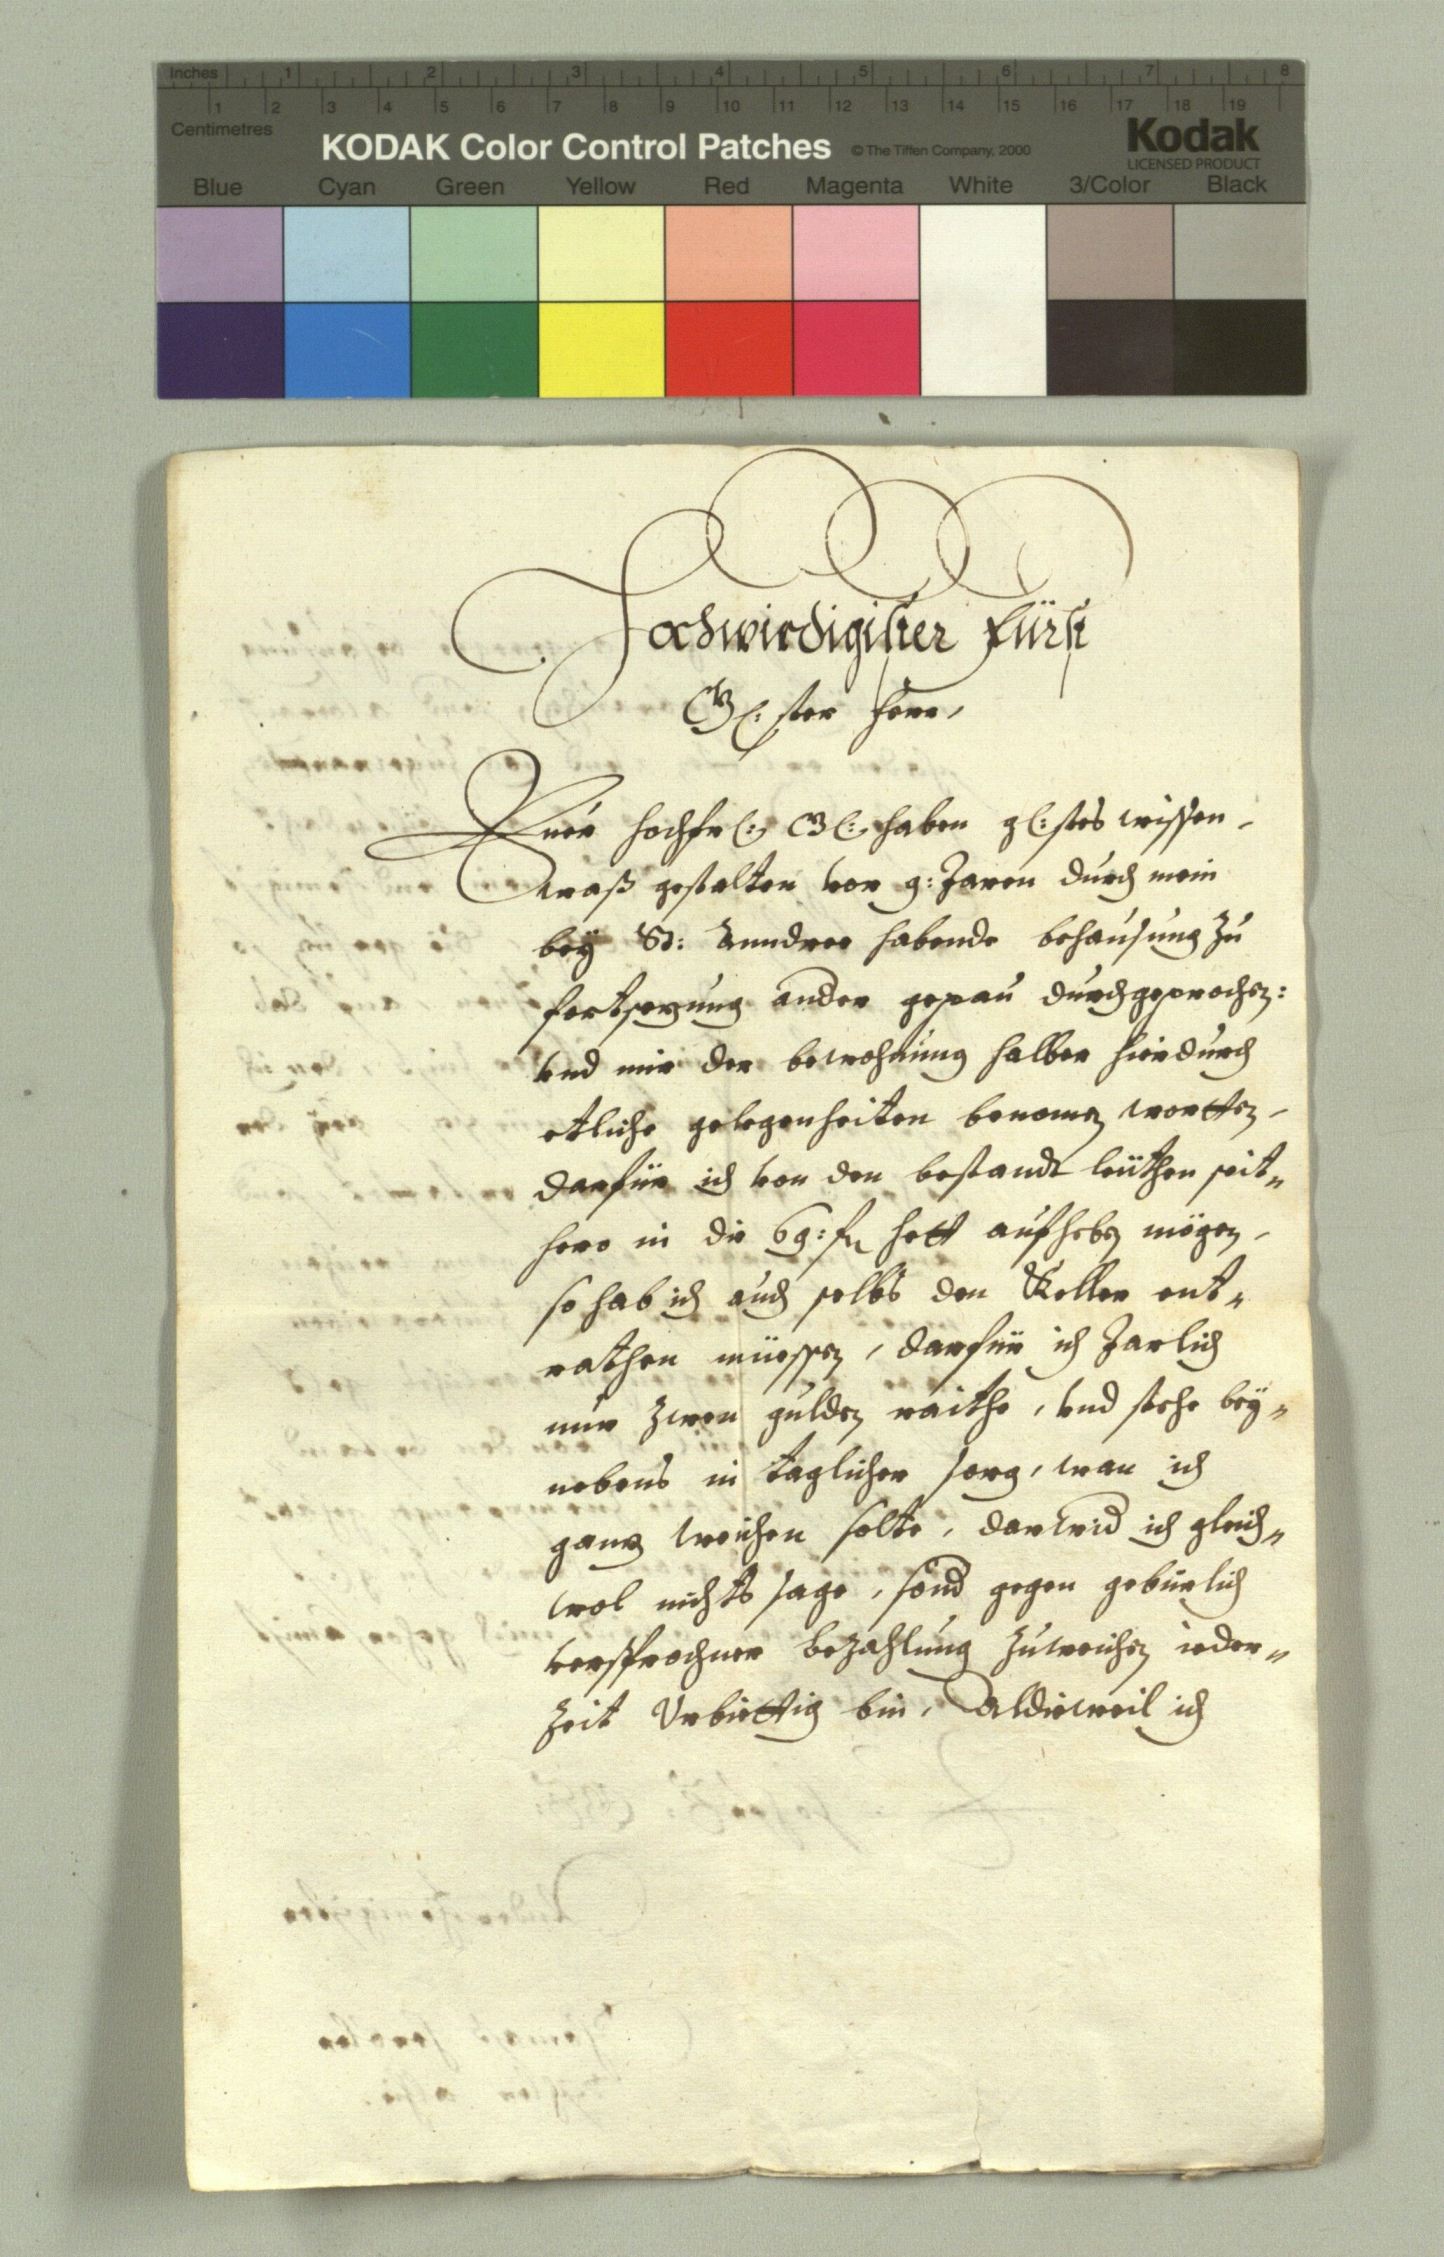 Inches 1 2 3 4 5 6 7 8
1 2 3 4 5 6 7 8 9 10 11 12 13 14 15 16 17 18 19
Centimetres
KODAK Color Control Patches © The Tiffen Company, 2000 Kodak
LICENSED PRODUCT
Blue Cyan Green Yellow Red Magenta White 3/Color Black
Hochwirdigister Fürst
G(: ster Herr,
Euer hochfr(: G(: haben g(: stes wissen,
waß gestalten vor 9: Jaren durch mein
bey St: Anndree habende behausung zu
fortsezung ander gepäu durchgeprochen:
vnd mir der bewohnung halber hierdurch
etliche gelegenheiten benomen worden,
darfür ich von den bestandt leüthen seit„
hero in die 69: fl hett aufheben mögen,
so hab ich auch selbs den Keller ent„
rathen müessen, darfür ich Jarlich
nur zwen gulden raithe, vnd stehe bey„
nebens in taglicher sorg, wan ich
ganz weichen solte, darwid ich gleich„
wol nichts sage, sond gegen gebürlich
versprochner bezahlung zuweichen ieder„
zeit Vrbiettig bin, Aldieweil ich